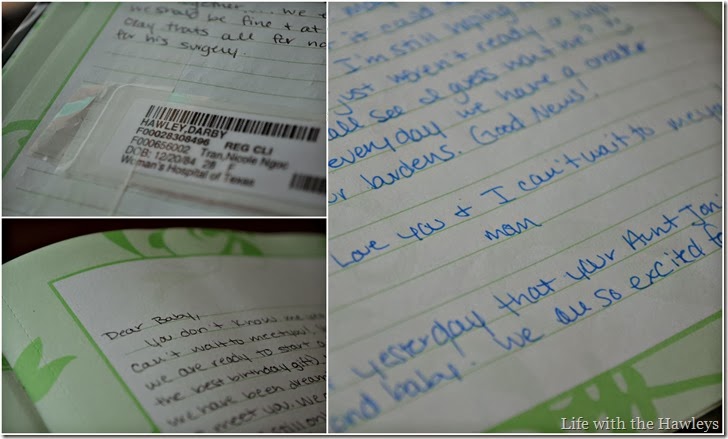 together... we
we should be fine & at
okay thats all for no
for his surgery.
HAWLEY,DARBY
F00028308496 REG CLI
F000656002 Tran,Nicole Ngoc
DOB: 12/20/84 28 F
Woman's Hospital of Texas
Dear Baby,
You don't know me
can't wait to meet you!
we are ready to start a
the best birthday gift)
we have been dream
to meet you. We
still on
it could
I'm still hoping
just weren't ready
all see I guess won't we?
everyday we have a greate
or burdens. Good News!
Love you & I can't wait to mee you
mom
yesterday that your Aunt Toni
ond baby. We are so excited fo
Life with the Hawleys